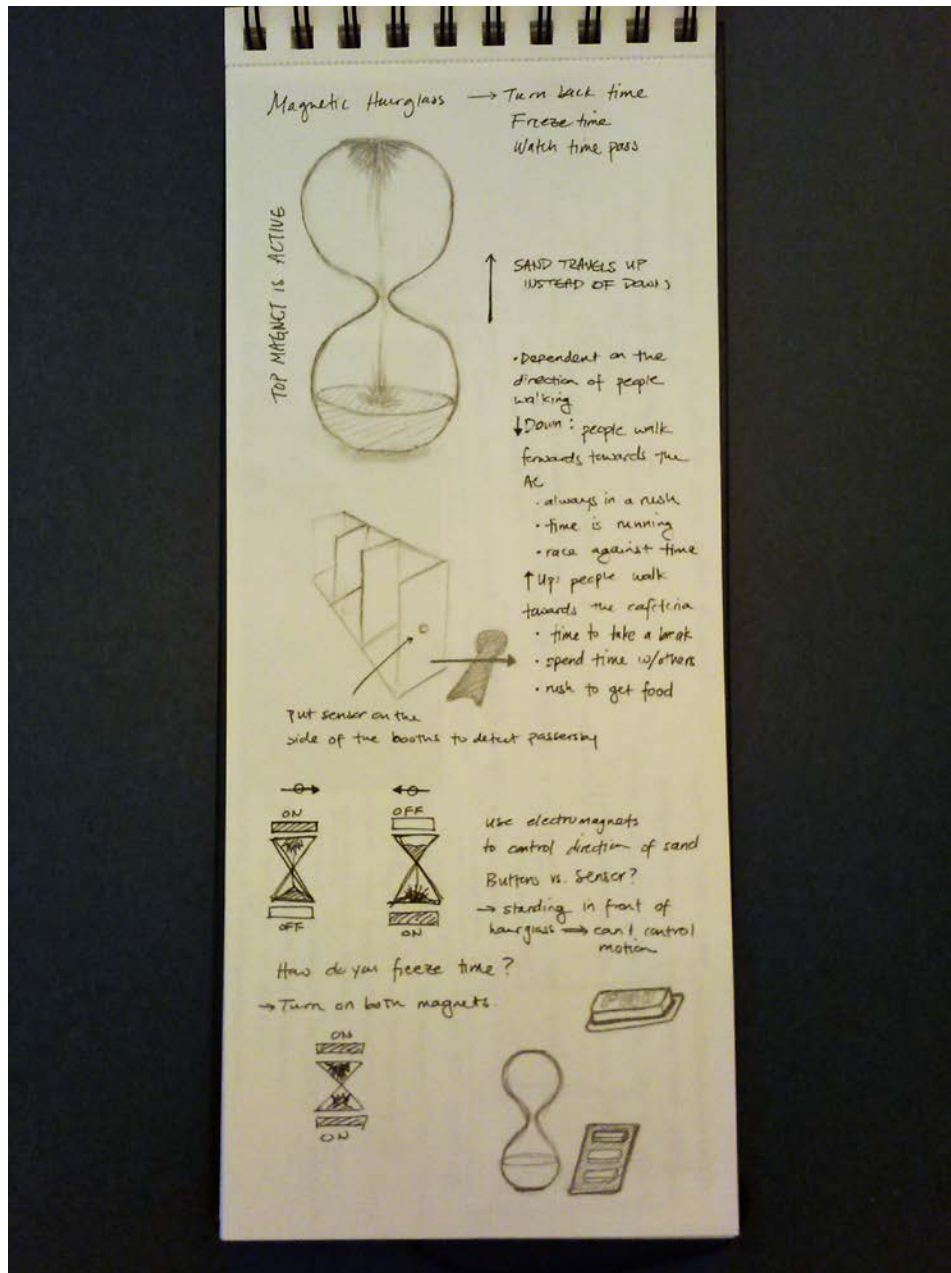 Magnetic Hourglass → Turn back time
Freeze time
Watch time pass
TOP MAGNET IS ACTIVE
↑ SAND TRAVELS UP
INSTEAD OF DOWN
• Dependent on the
direction of people
walking
↓ Down: people walk
forwards towards the
AC
• always in a rush
• time is running
• race against time
↑ Up: people walk
towards the cafeteria
• time to take a break
• spend time w/others
• rush to get food
Put sensor on the
side of the booths to detect passersby
ON
OFF
OFF
ON
Use electromagnets
to control direction of sand
Buttons vs. Sensor?
→ standing in front of
hourglass → can't control
motion
How do you freeze time?
→ Turn on both magnets
ON
ON